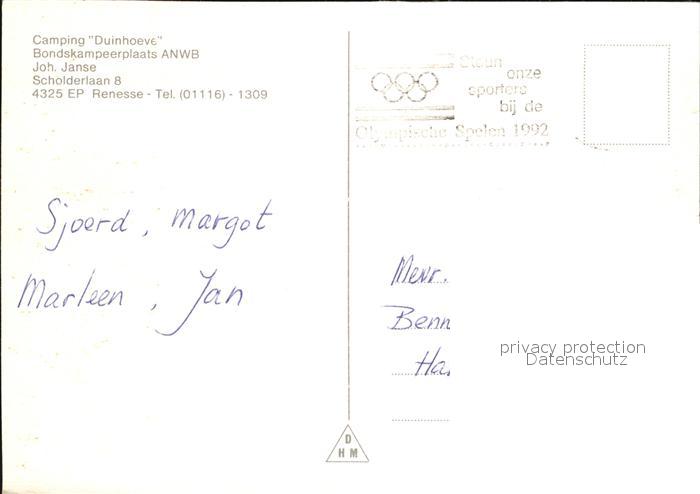 Camping "Duinhoeve"
Bondskampeerplaats ANWB
Joh. Janse
Scholderlaan 8
4325 EP Renesse - Tel. (01116) - 1309
Steun
onze
sporters
bij de
Olympische Spelen 1992
Sjoerd, Margot
Marleen, Jan
Mevr.
Benn
Ha.
privacy protection
Datenschutz
D
H M